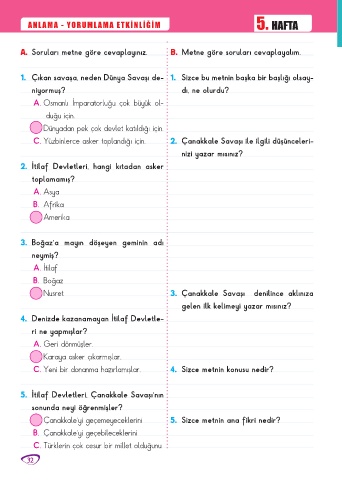 ANLAMA - YORUMLAMA ETKİNLİĞİM
5. HAFTA
A. Soruları metne göre cevaplayınız.
1. Çıkan savaşa, neden Dünya Savaşı de-
niyormuş?
A. Osmanlı İmparatorluğu çok büyük ol-
duğu için.
Dünyadan pek çok devlet katıldığı için.
C. Yüzbinlerce asker toplandığı için.
2. İtilaf Devletleri, hangi kıtadan asker
toplamamış?
A. Asya
B. Afrika
Amerika
3. Boğaz'a mayın döşeyen geminin adı
neymiş?
A. İtilaf
B. Boğaz
Nusret
4. Denizde kazanamayan İtilaf Devletle-
ri ne yapmışlar?
A. Geri dönmüşler.
Karaya asker çıkarmışlar.
C. Yeni bir donanma hazırlamışlar.
5. İtilaf Devletleri, Çanakkale Savaşı'nın
sonunda neyi öğrenmişler?
Çanakkale'yi geçemeyeceklerini
B. Çanakkale'yi geçebileceklerini
C. Türklerin çok cesur bir millet olduğunu
B. Metne göre soruları cevaplayalım.
1. Sizce bu metnin başka bir başlığı olsay-
dı, ne olurdu?
2. Çanakkale Savaşı ile ilgili düşünceleri-
nizi yazar mısınız?
3. Çanakkale Savaşı denilince aklınıza
gelen ilk kelimeyi yazar mısınız?
4. Sizce metnin konusu nedir?
5. Sizce metnin ana fikri nedir?
32